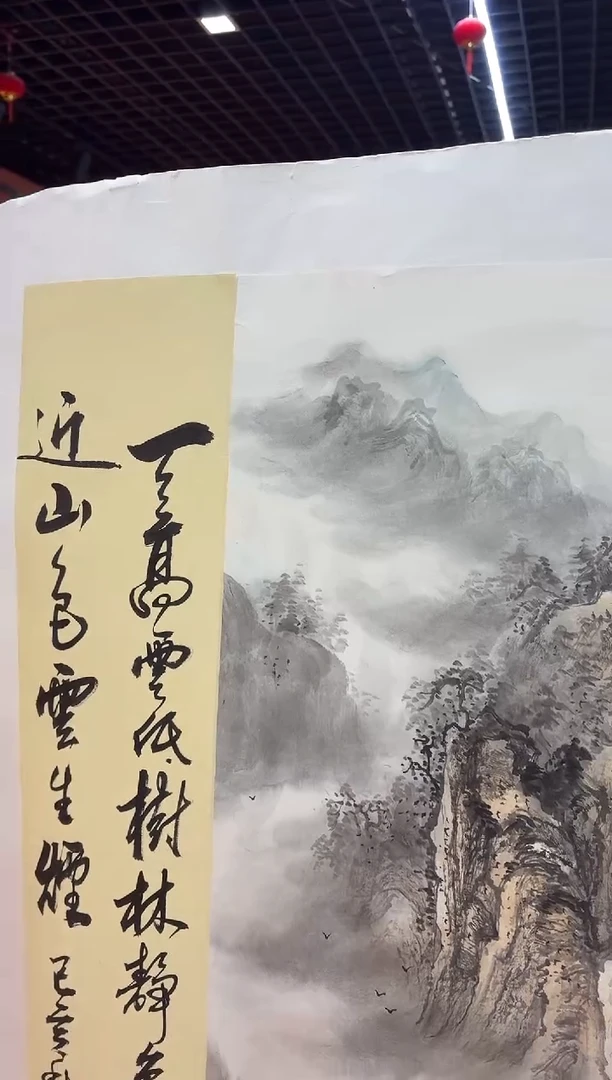 天高雲低樹林靜
近山色雲生煙
己亥